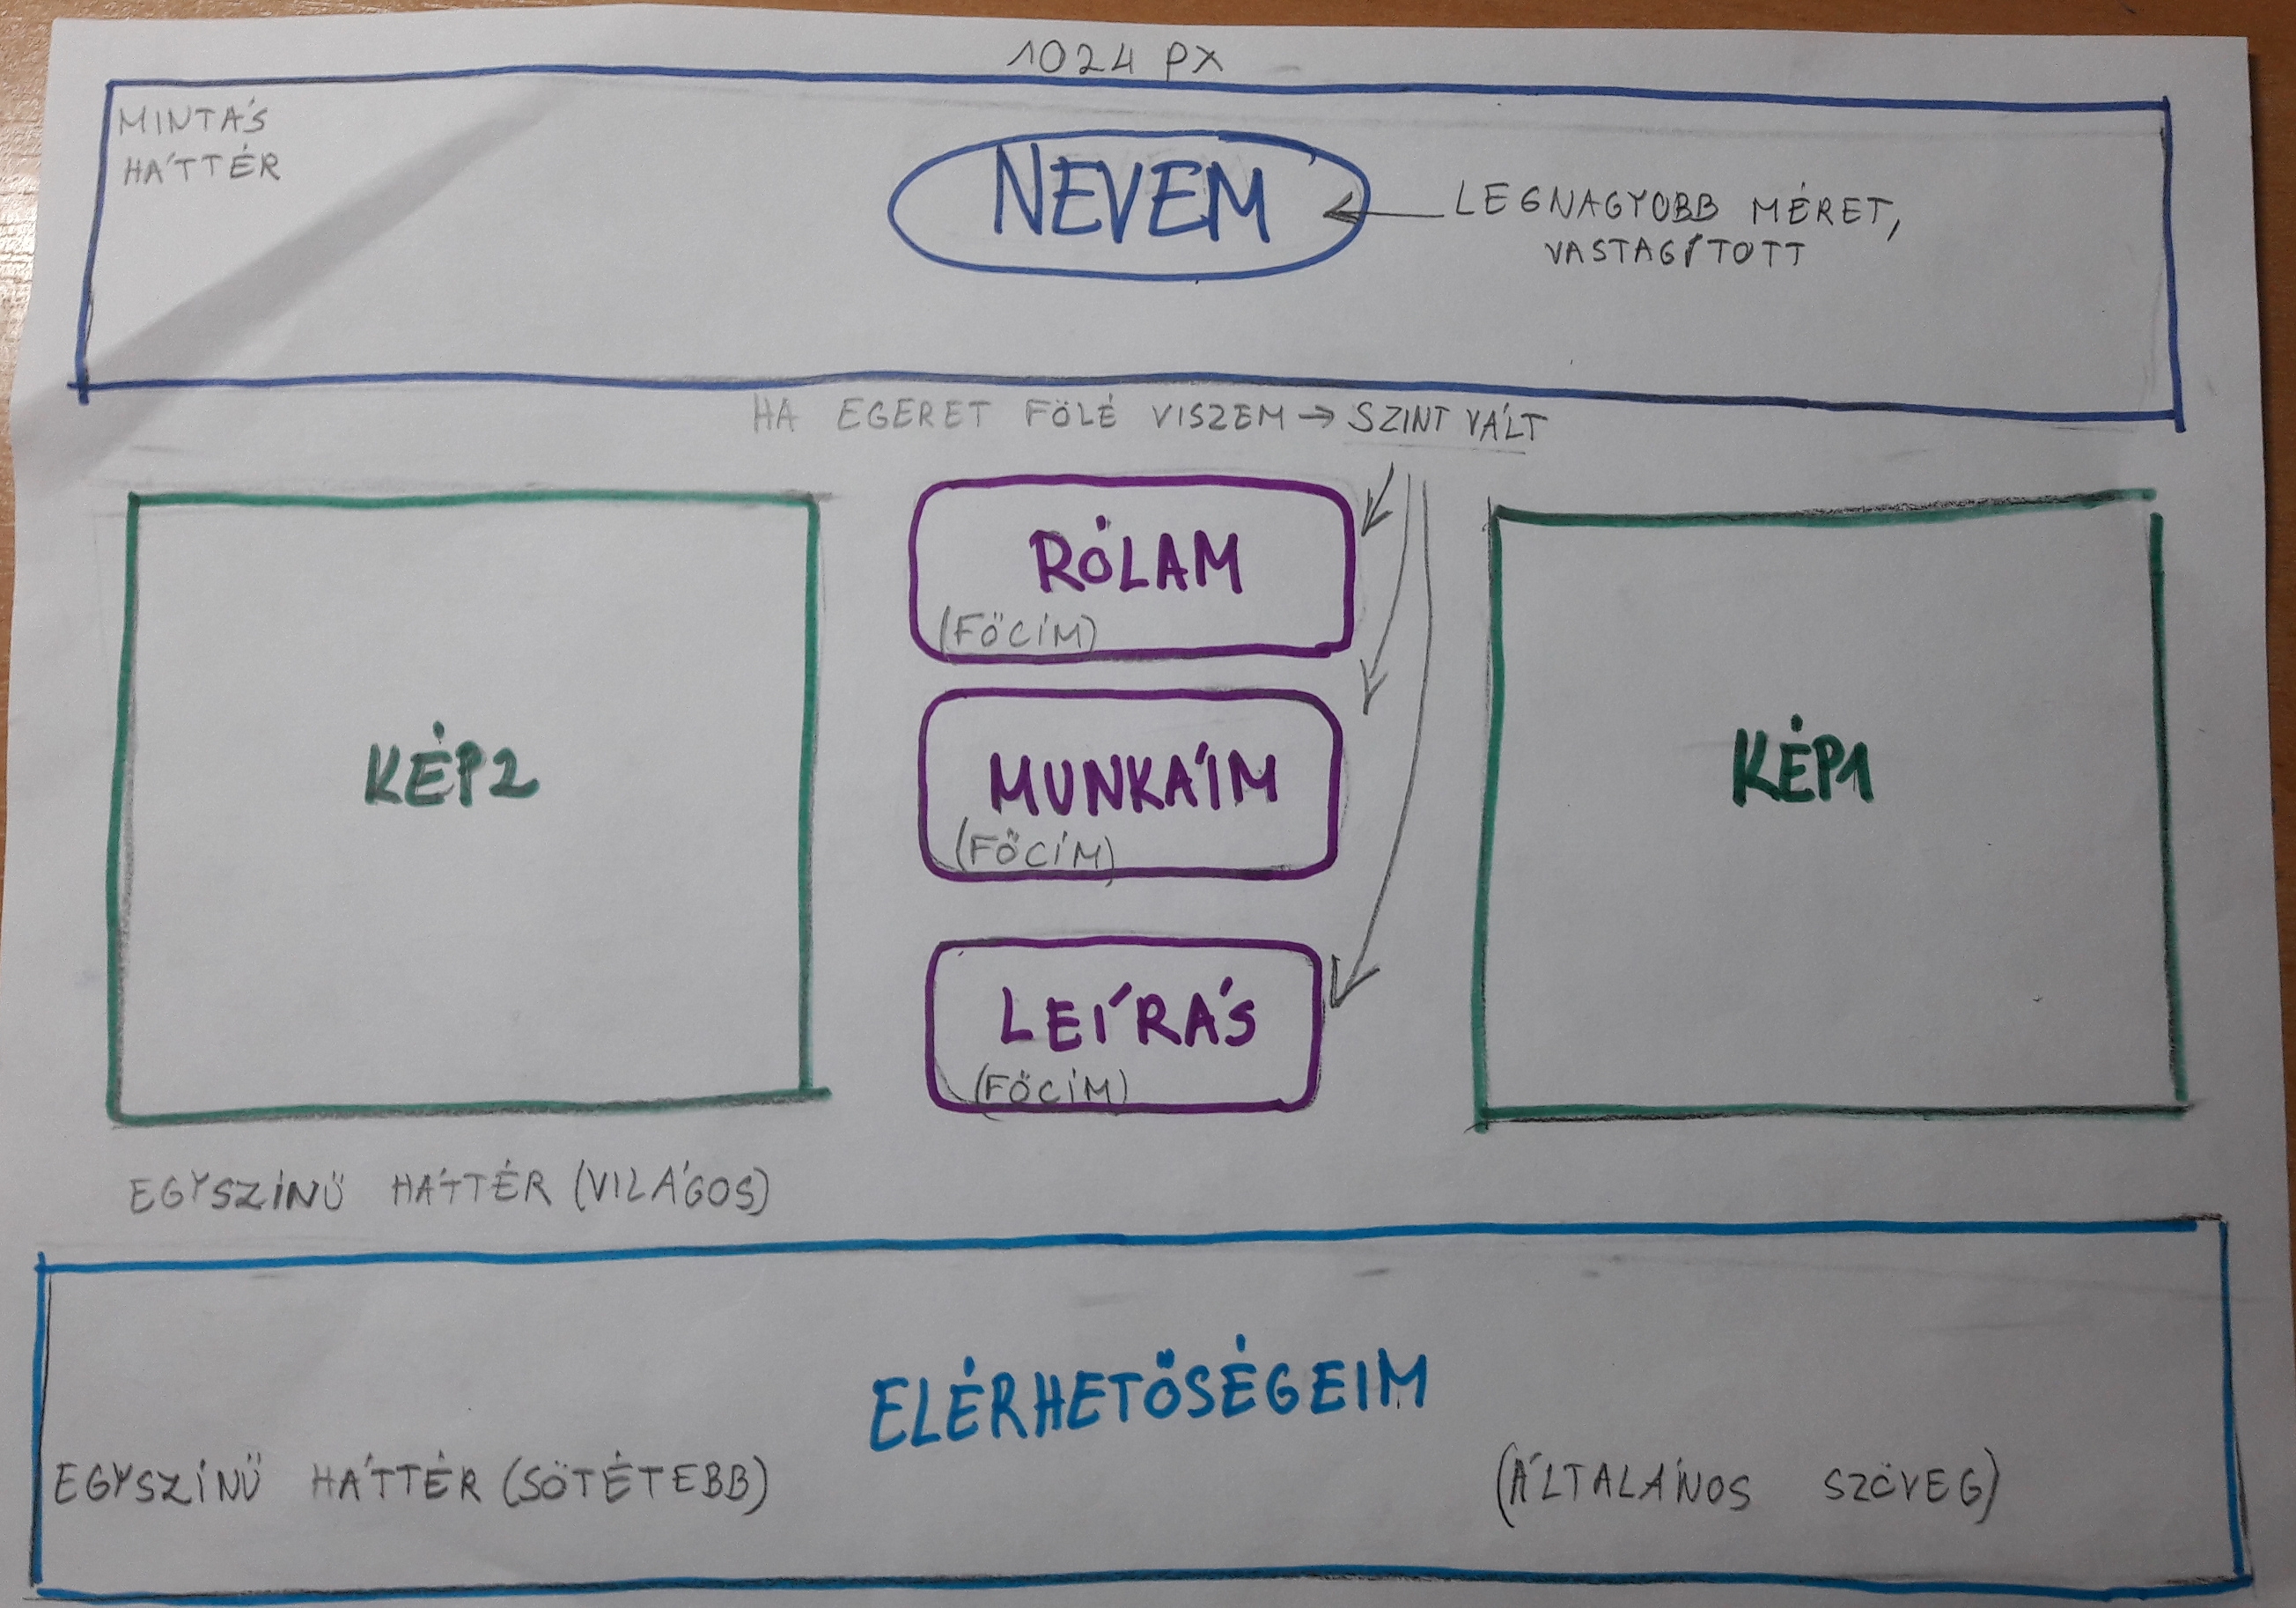 1024 PX
MINTÁS
HÁTTÉR
NEVEM
LEGNAGYOBB MÉRET,
VASTAGÍTOTT
HA EGERET FÖLÉ VISZEM → SZINT VÁLT
RÓLAM
(FŐCÍM)
KÉP2
MUNKÁIM
(FŐCÍM)
KÉP1
LEÍRÁS
(FŐCÍM)
EGYSZÍNŰ HÁTTÉR (VILÁGOS)
ELÉRHETŐSÉGEIM
EGYSZÍNŰ HÁTTÉR (SÖTÉTEBB)
(ÁLTALÁNOS SZÖVEG)